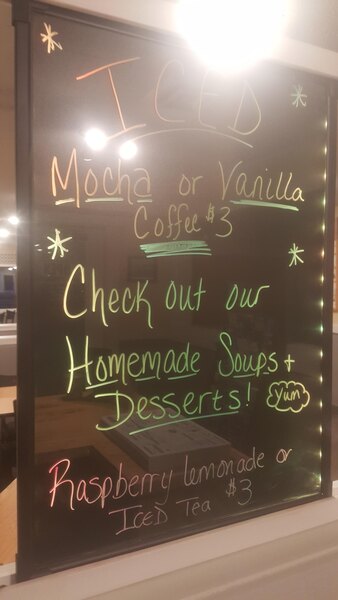 ICED
Mocha or Vanilla
Coffee $3
Check out our
Homemade Soups +
Desserts! Yum
Raspberry lemonade or
Iced Tea $3